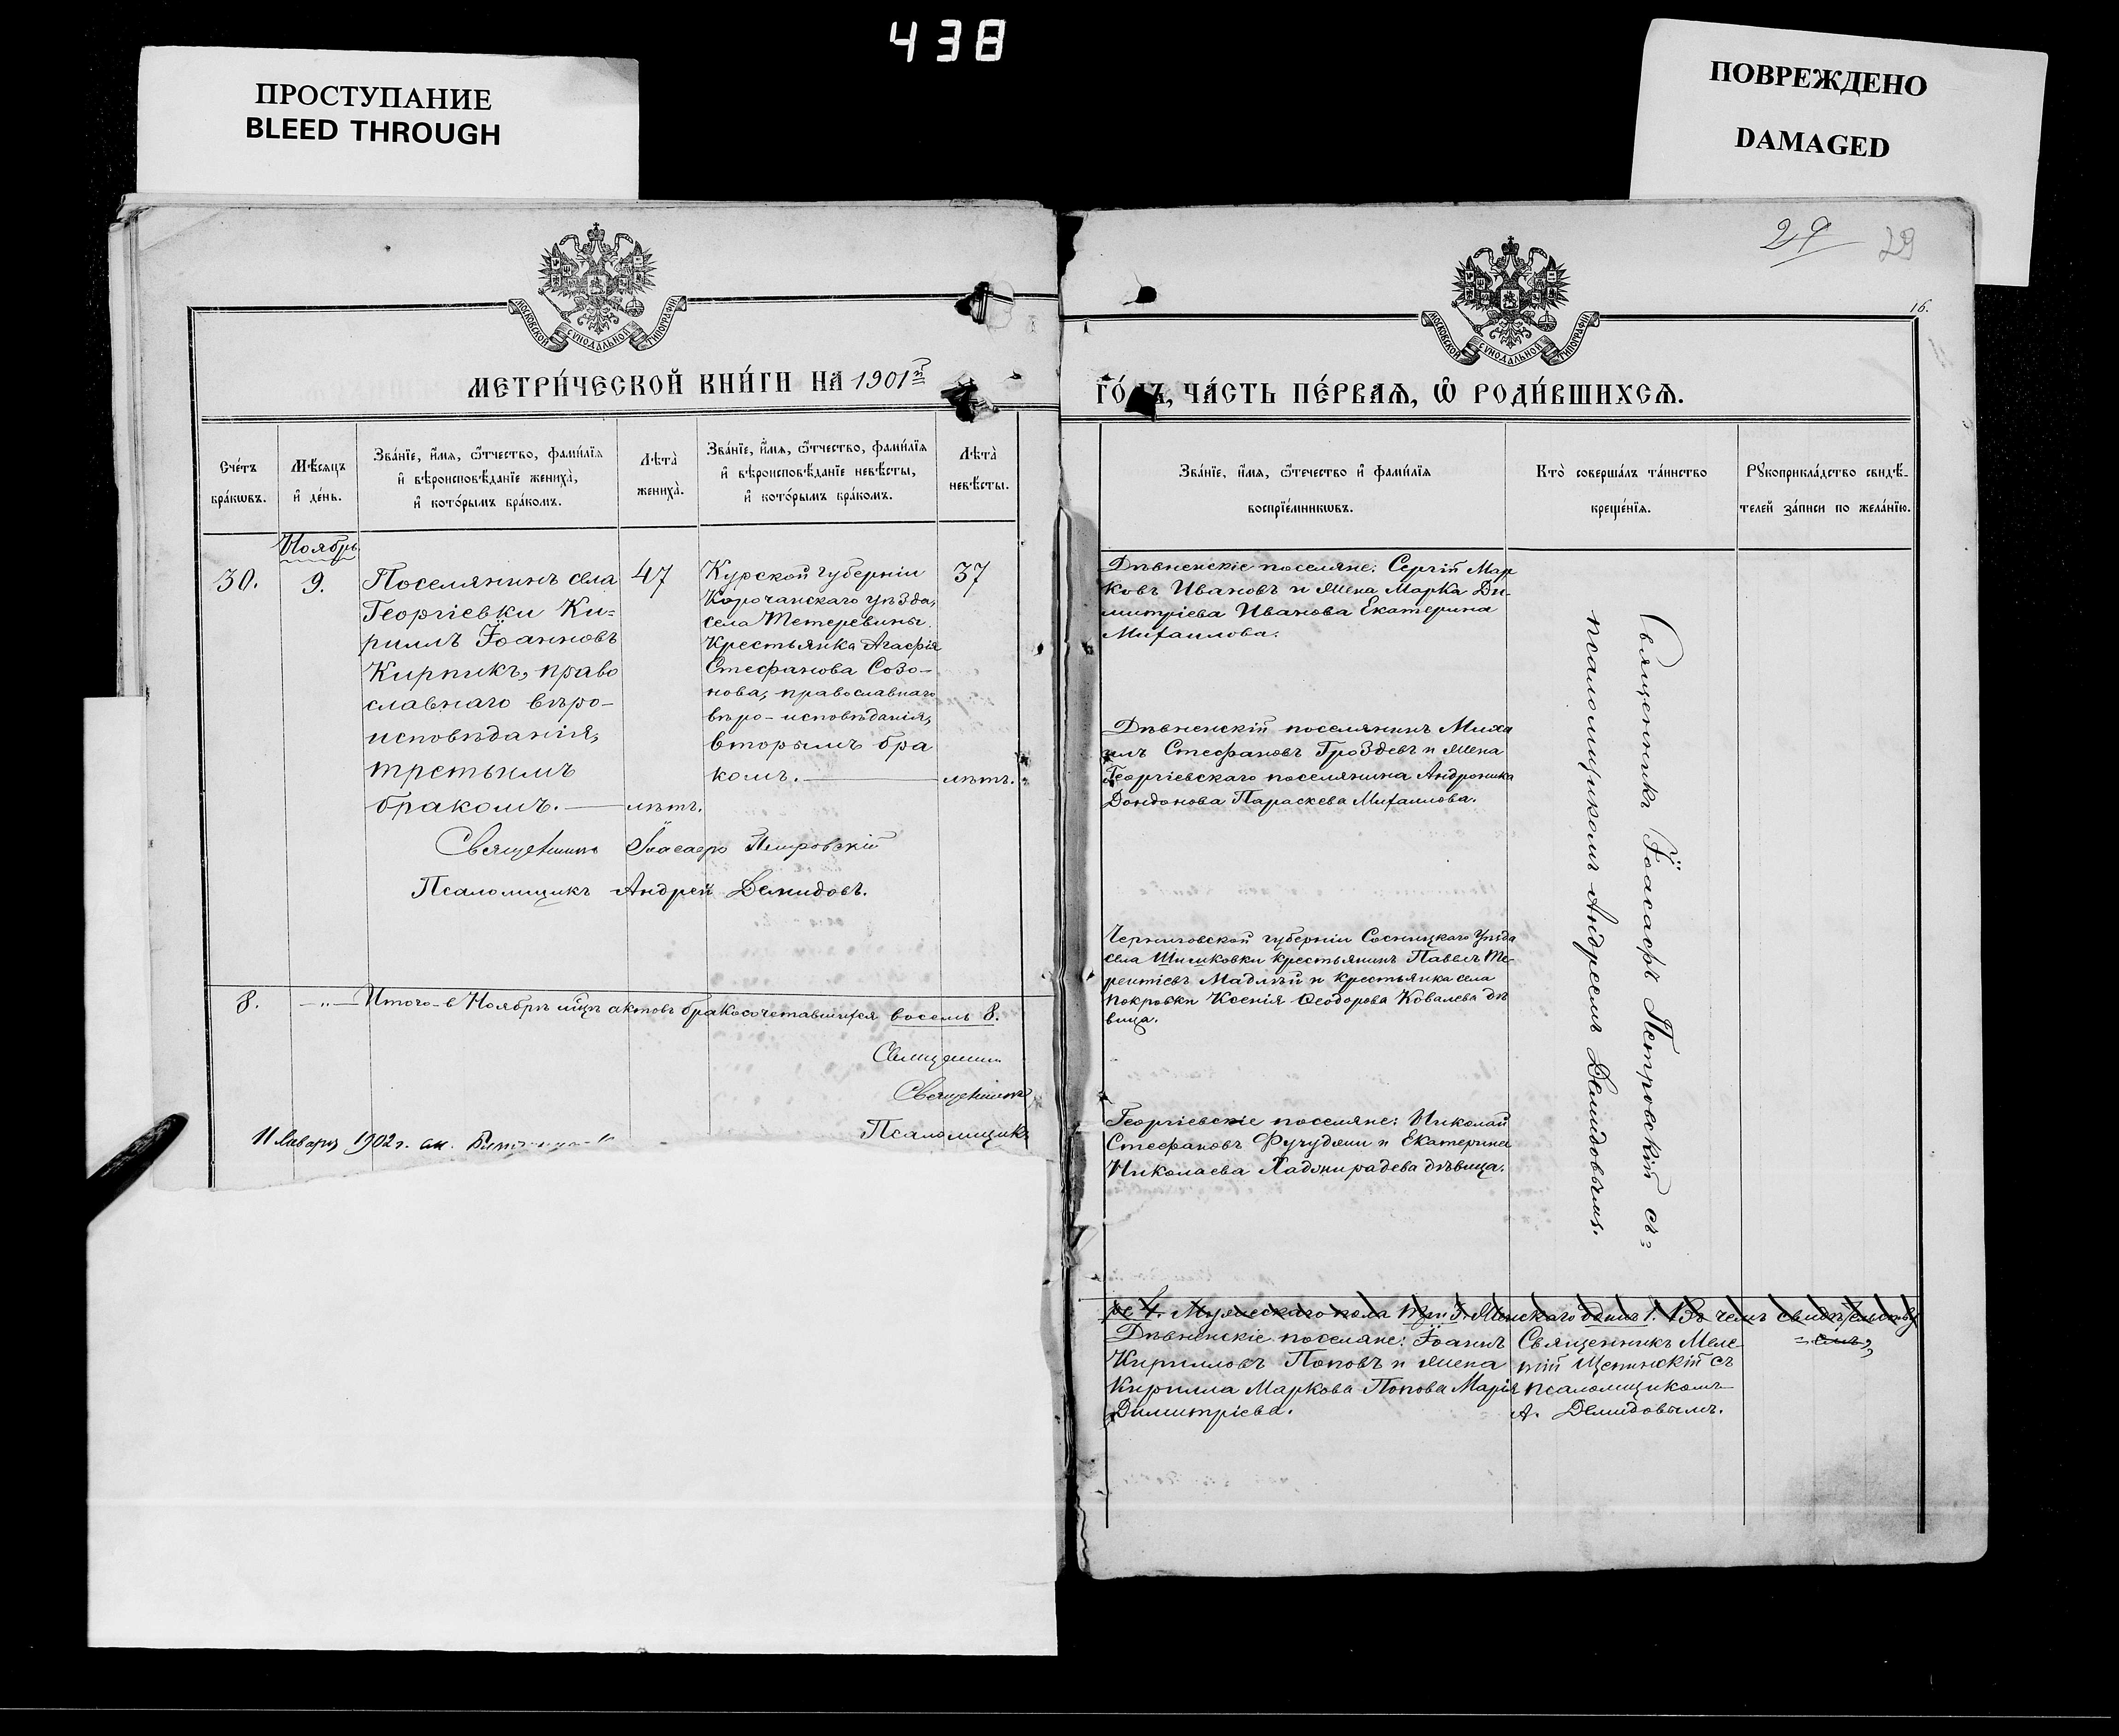 438
ПРОСТУПАНИЕ
BLEED THROUGH
ПОВРЕЖДЕНО
DAMAGED
МОСКОВСКОЙ СѴНОДАЛЬНОЙ ТИПОГРАФІИ
МЕТРИ́ЧЕСКОЙ КНИ́ГИ НА 1901й
Сче́тъ
бра́кωвъ.
Мѣ́сяцъ
и҆ де́нь.
Зва́нїе, и҆́мя, ѿ́тчество, фами́лїя
и҆ вѣроисповѣ́данїе жениха̀,
и҆ кото́рымъ бра́комъ.
Лѣта̀
жениха̀.
Зва́нїе, и҆́мя, ѿ́тчество, фами́лїя
и҆ вѣроисповѣ́данїе невѣ́сты,
и҆ кото́рымъ бра́комъ.
Лѣта̀
невѣ́сты.
Ноябрь
30.
9.
Поселянинъ села
Георгіевки Ки=
риллъ Іоанновъ
Кирпикъ, право
славнаго вѣро-
исповѣданія,
третьимъ
бракомъ.
47
лѣтъ.
Курской губерніи
Корочанскаго уѣзда,
села Тетеревины.
Крестьянка Агафія
Стефанова Созо-
нова, православнаго
вѣро-исповѣданія,
вторымъ бра
комъ.
37
лѣтъ.
Священникъ Іоасафъ Петровскій
Псаломщикъ Андрей Демидовъ.
8. —"— Итого в Ноябрѣ мцѣ актовъ бракосочетавшихся восемь 8.
Священникъ
Псаломщикъ
11 Января 1902 г.
29 29
16.
МОСКОВСКОЙ СѴНОДАЛЬНОЙ ТИПОГРАФІИ
ГО́ДЪ, ЧА́СТЬ ПЕ́РВАЯ, Ѡ҆ РОДИ́ВШИХСЯ.
Зва́нїе, и҆́мя, ѿ́течество и҆ фами́лїя
воспрїе́мникωвъ.
Кто̀ соверша́лъ та́инство
креще́нїя.
Рꙋкоприкла́дство свидѣ́-
телей за́писи по жела́нїю.
Дѣвненскіе поселяне: Сергій Мар
ковъ Ивановъ и жена Марка Ди-
митріева Иванова Екатерина
Михаилова.
Дѣвненскій поселянинъ Миха
илъ Стефановъ Гроздевъ и жена
Георгіевскаго поселянина Андроника
Дондонова Параскева Михаилова.
Черниговской губерніи Сосницкаго Уѣзда
села Шишковки крестьянинъ Павелъ Те-
рентіевъ Мадлый и крестьянка села
Покровки Ксенія Ѳеодорова Ковалева дѣ
вица.
Георгіевскіе поселяне: Николай
Стефановъ Фучуджи и Екатерина
Николаева Хаджирадева дѣвица.
Священникъ Іоасафъ Петровскій съ=
псаломщикомъ Андреемъ Демидовымъ.
ре 4. Мужескаго пола три 3. Женскаго одинъ 1. Въ чемъ свидѣтельству
=емъ,
Дѣвненскіе поселяне: Іоаннъ
Кирилловъ Поповъ и жена
Кирилла Маркова Попова Марія
Димитріева.
Священникъ Меле-
тій Щепинскій съ
псаломщикомъ
А. Демидовымъ.